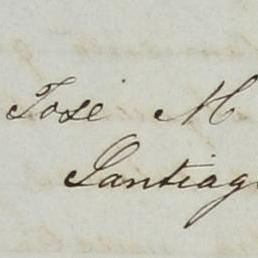 José M
Santiag